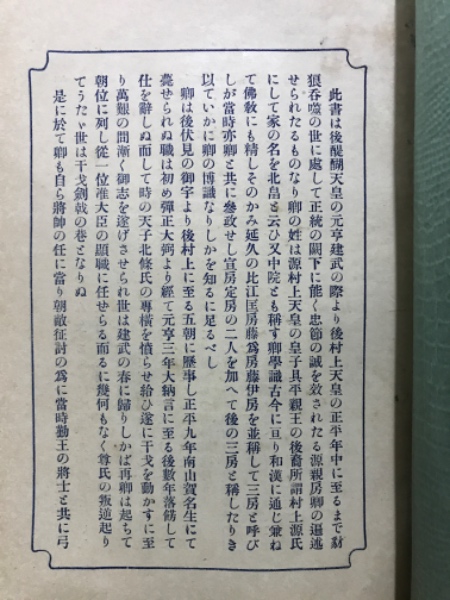 此書は後醍醐天皇の元亨建武の際より後村上天皇の正平年中に至るまで豺
狼呑噬の世に處して正統の闕下に能く忠節の誠を效されたる源親房卿の遍述
せられたるものなり卿の姓は源村上天皇の皇子具平親王の後裔所謂村上源氏
にして家の名を北畠と云ひ又中院とも稱す卿學識古今に亘り和漢に通じ兼ね
て佛敎にも精しそのかみ延久の比江匡房藤爲房藤伊房を並稱して三房と呼び
しが當時亦卿と共に參政せし宣房定房の二人を加へて後の三房と稱したりき
以ていかに卿の博識なりしかを知るに足るべし
卿は後伏見の御宇より後村上に至る五朝に歷事し正平九年南山賀名生にて
薨せられぬ職は初め彈正大弼より經て元亨三年大納言に至る後數年落餝して
仕を辭しぬ而して時の天子北條氏の專橫を憤らせ給ひ遂に干戈を動かすに至
り萬艱の間漸く御志を遂げさせられ世は建武の春に歸りしかば再卿は起ちて
朝位に列し從一位准大臣の顯職に任せらる而るに幾何もなく尊氏の叛逆起り
てうたゝ世は干戈劍戟の巷となりぬ
是に於て卿も自ら將帥の任に當り朝敵征討の爲に當時勤王の將士と共に弓